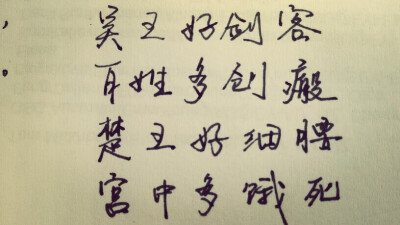 吴王好剑客
百姓多创瘢
楚王好细腰
宫中多饿死